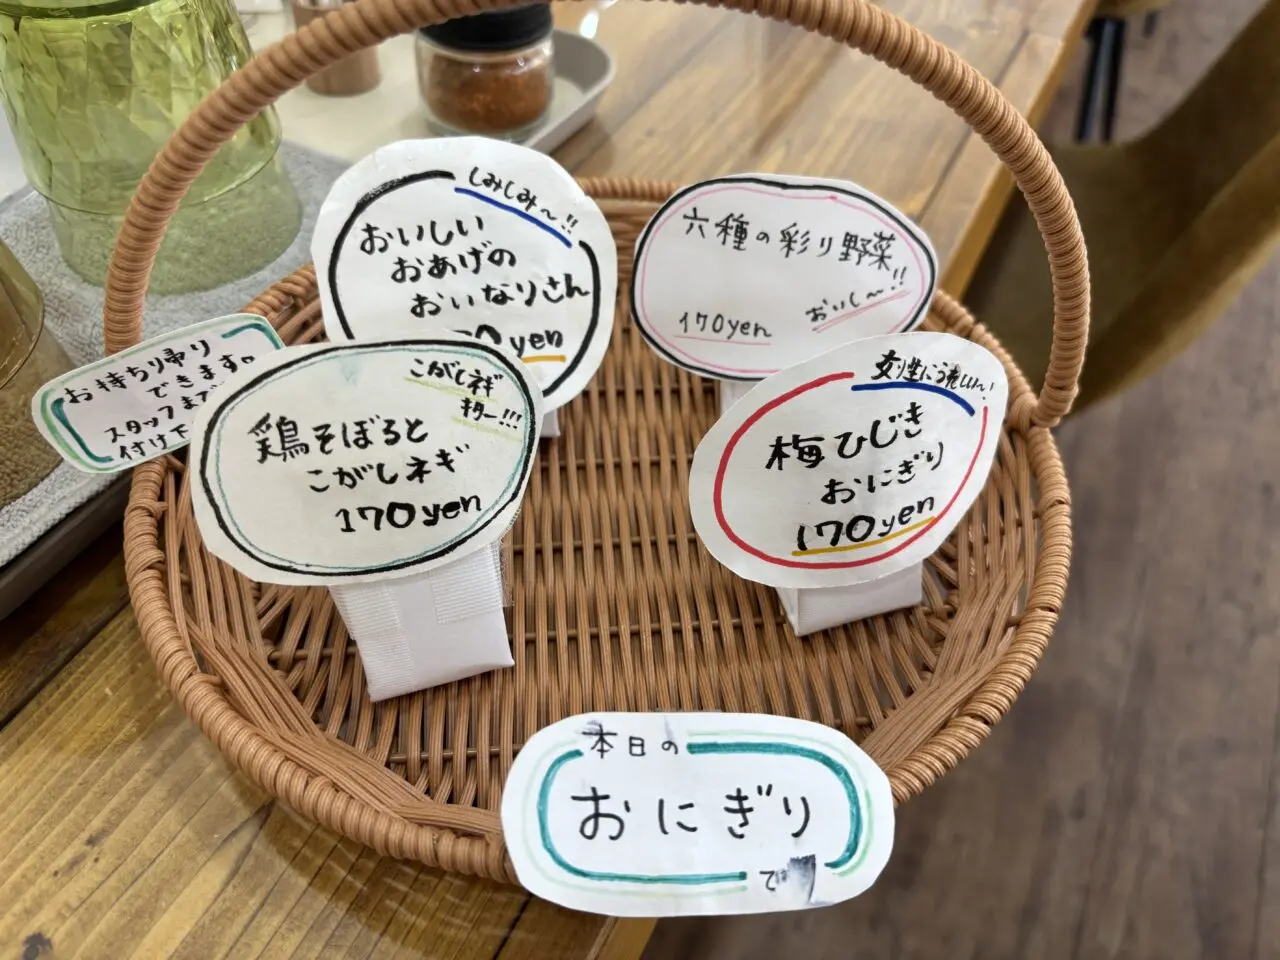 しみしみ〜!!
おいしい
おあげの
おいなりさん
0yen
六種の彩り野菜
おいし〜!!
170yen
お持ち帰り
できます。
スタッフまで
付け下
こがしネギ
キター!!!
鶏そぼろと
こがしネギ
170yen
女性にうれしい〜!
梅ひじき
おにぎり
170yen
本日の
おにぎり
で